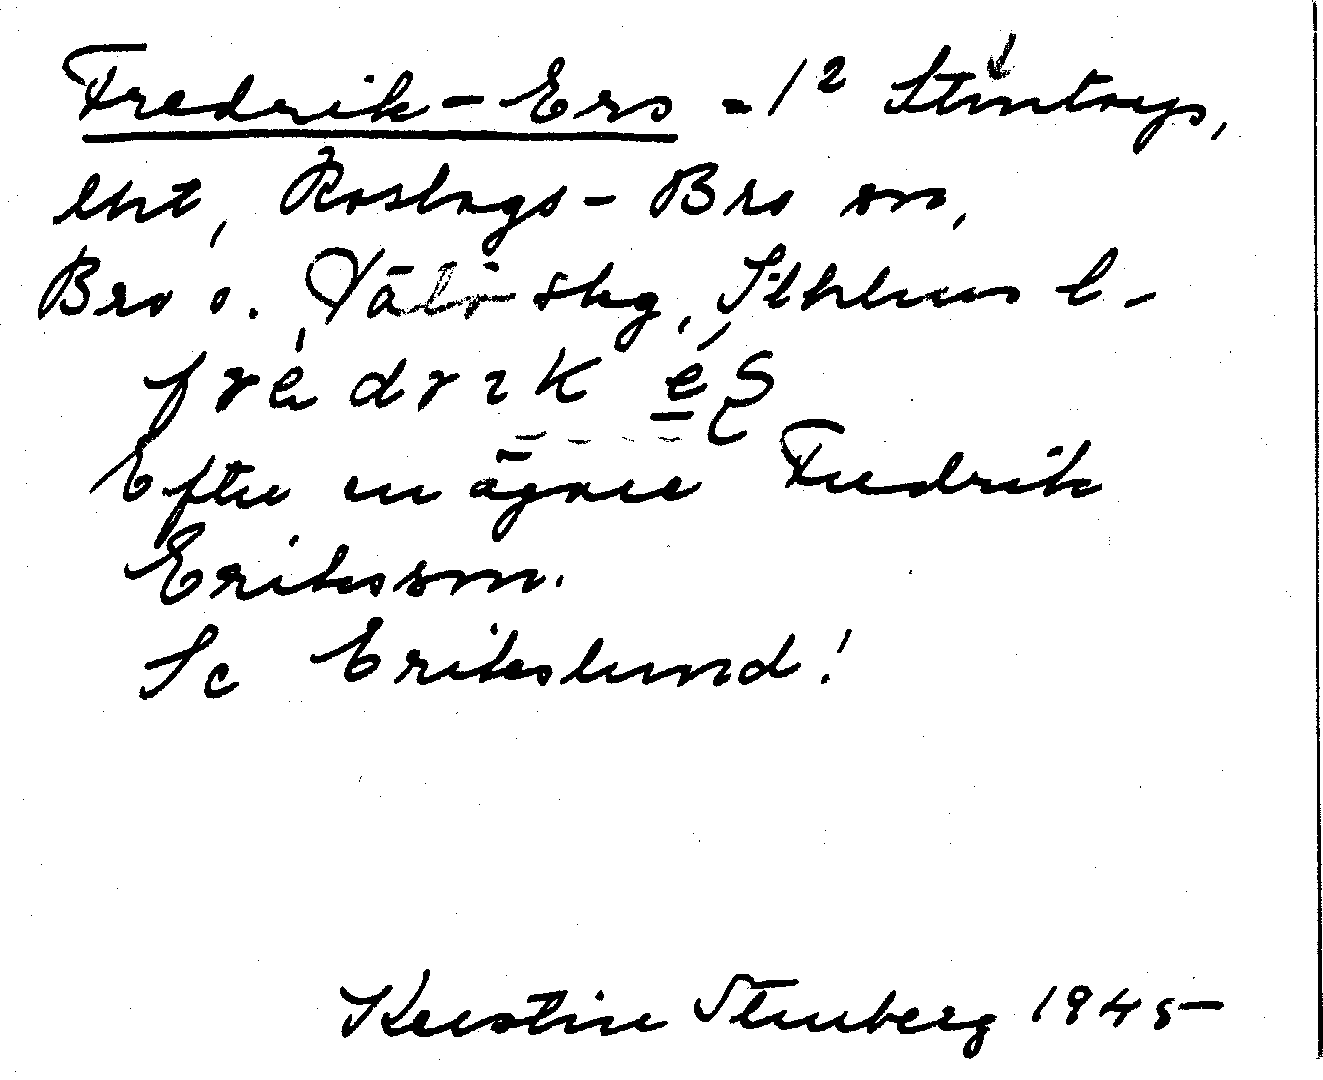 Fredrik-Ers = 1² Stutorps,
lht, Roslags-Bro sn,
Bro o. Vätö skg, Sthlms l.
frèdrik é̱ʂ
Efter en ägare Fredrik
Eriksson.
Se Erikslund!
Kerstin Stenberg 1945